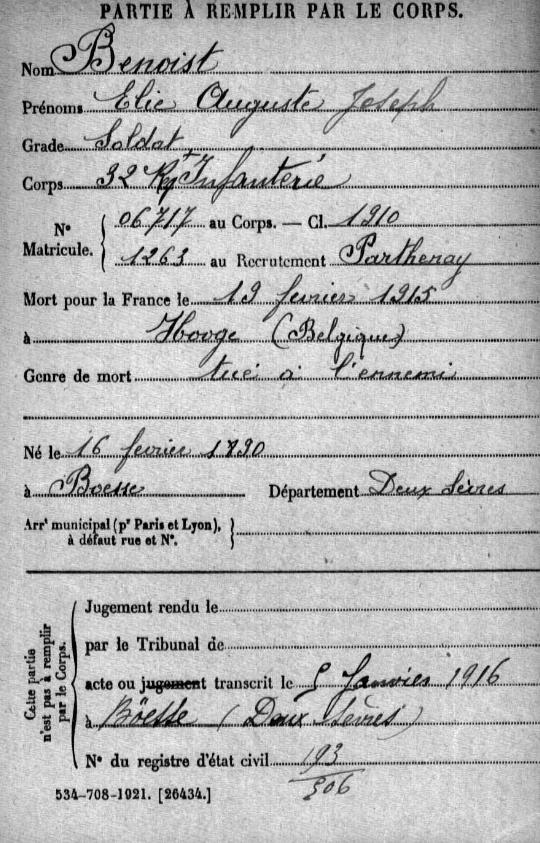 PARTIE À REMPLIR PAR LE CORPS.
Nom Benoist
Prénoms Elie Auguste Joseph
Grade Soldat
Corps 32 Rgt Infanterie
N° Matricule. { 06717 au Corps. — Cl. 1910
1263 au Recrutement Parthenay
Mort pour la France le 19 fevrier 1915
à Hooge (Belgique)
Genre de mort tué à l'ennemi
Né le 16 fevrier 1890
à Boesse Département Deux Sèvres
Arrt municipal (pr Paris et Lyon), à défaut rue et N°. }
Cette partie n'est pas à remplir par le Corps.
Jugement rendu le
par le Tribunal de
acte ou jugement transcrit le 5 Janvier 1916
à Böesse (Deux Sèvres)
N° du registre d'état civil 193
506
534-708-1921. [26434.]